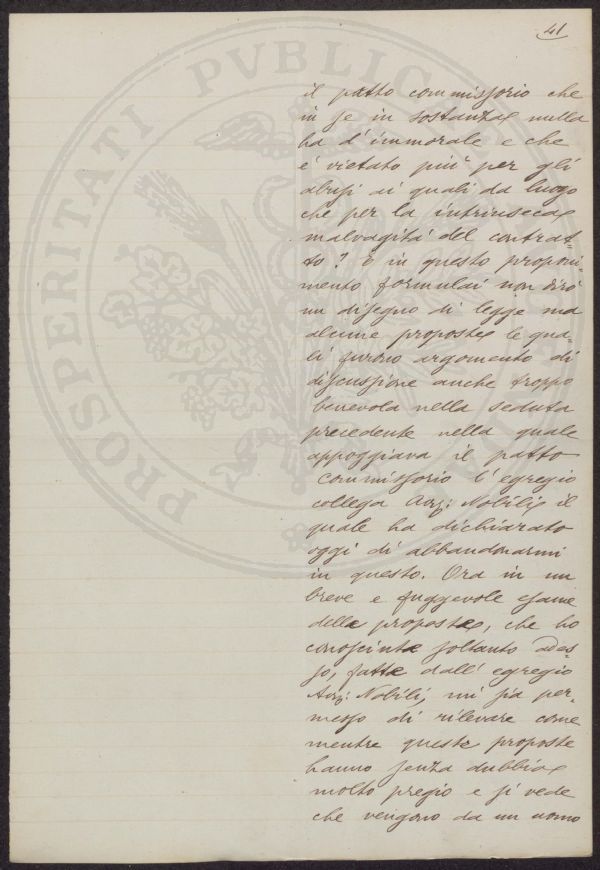 41
PROSPERITATI PVBLICAE
il patto commissorio che
in se in sostanza nulla
ha d'immorale e che
è vietato più per gli
abusi ai quali da luogo
che per la intrinseca
malvagità del contrat-
to? E in questo proponi-
mento formulai non dirò
un disegno di legge ma
alcune proposte le qua-
li furono argomento di
discussione anche troppo
benevola nella seduta
precedente nella quale
appoggiava il patto
commissorio l'egregio
collega Avv: Nobili il
quale ha dichiarato
oggi di abbandonarmi
in questo. Ora in un
breve e fuggevole esame
delle proposte, che ho
conosciute soltanto ades-
so, fatte dall'egregio
Avv: Nobili, mi sia per-
messo di rilevare come
mentre queste proposte
hanno senza dubbio
molto pregio e si vede
che vengono da un uomo